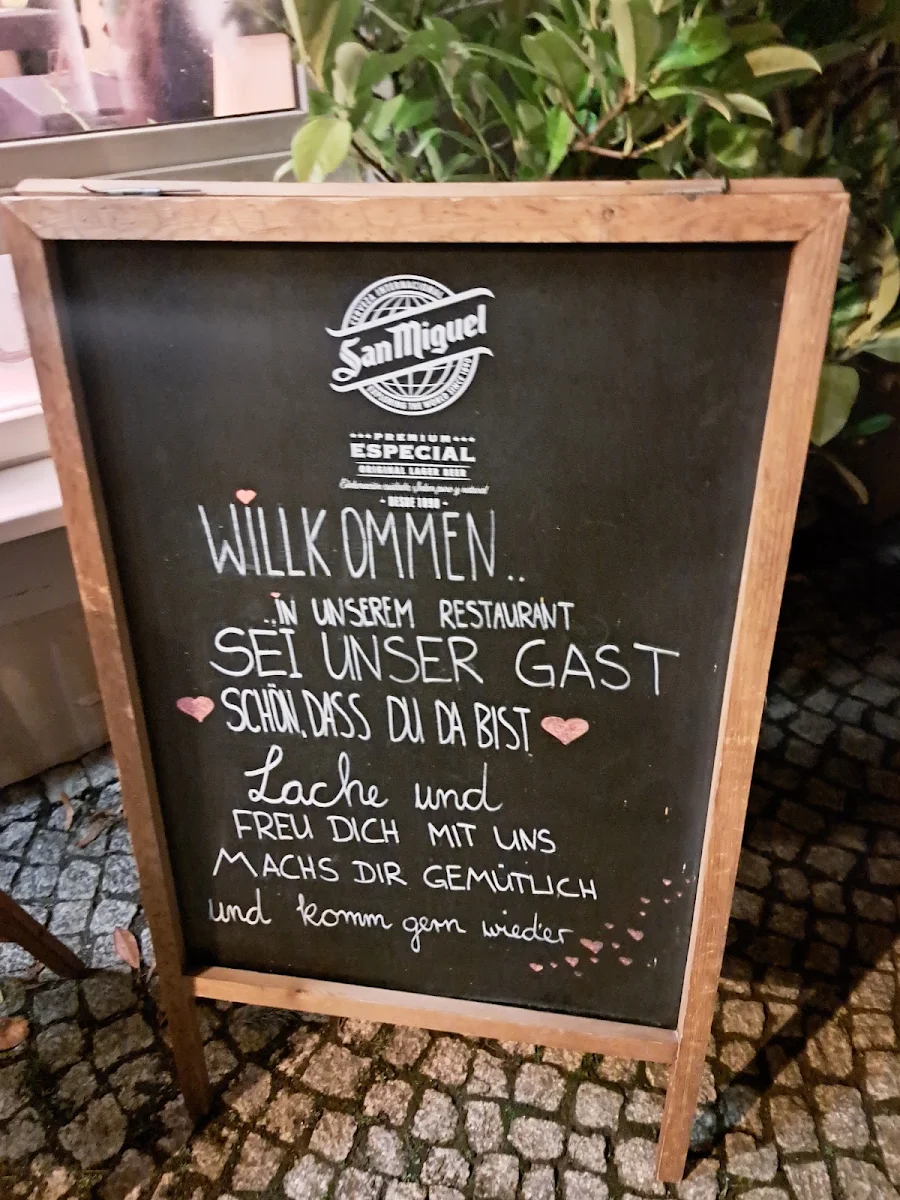 CERVEZA INTERNACIONAL
San Miguel
EXPLORING THE WORLD SINCE 1890
PREMIUM
ESPECIAL
ORIGINAL LAGER BEER
- DESDE 1890 -
WILLKOMMEN..
IN UNSEREM RESTAURANT
SEI UNSER GAST
SCHÖN, DASS DU DA BIST
Lache und
FREU DICH MIT UNS
MACHS DIR GEMÜTLICH
und komm gern wieder